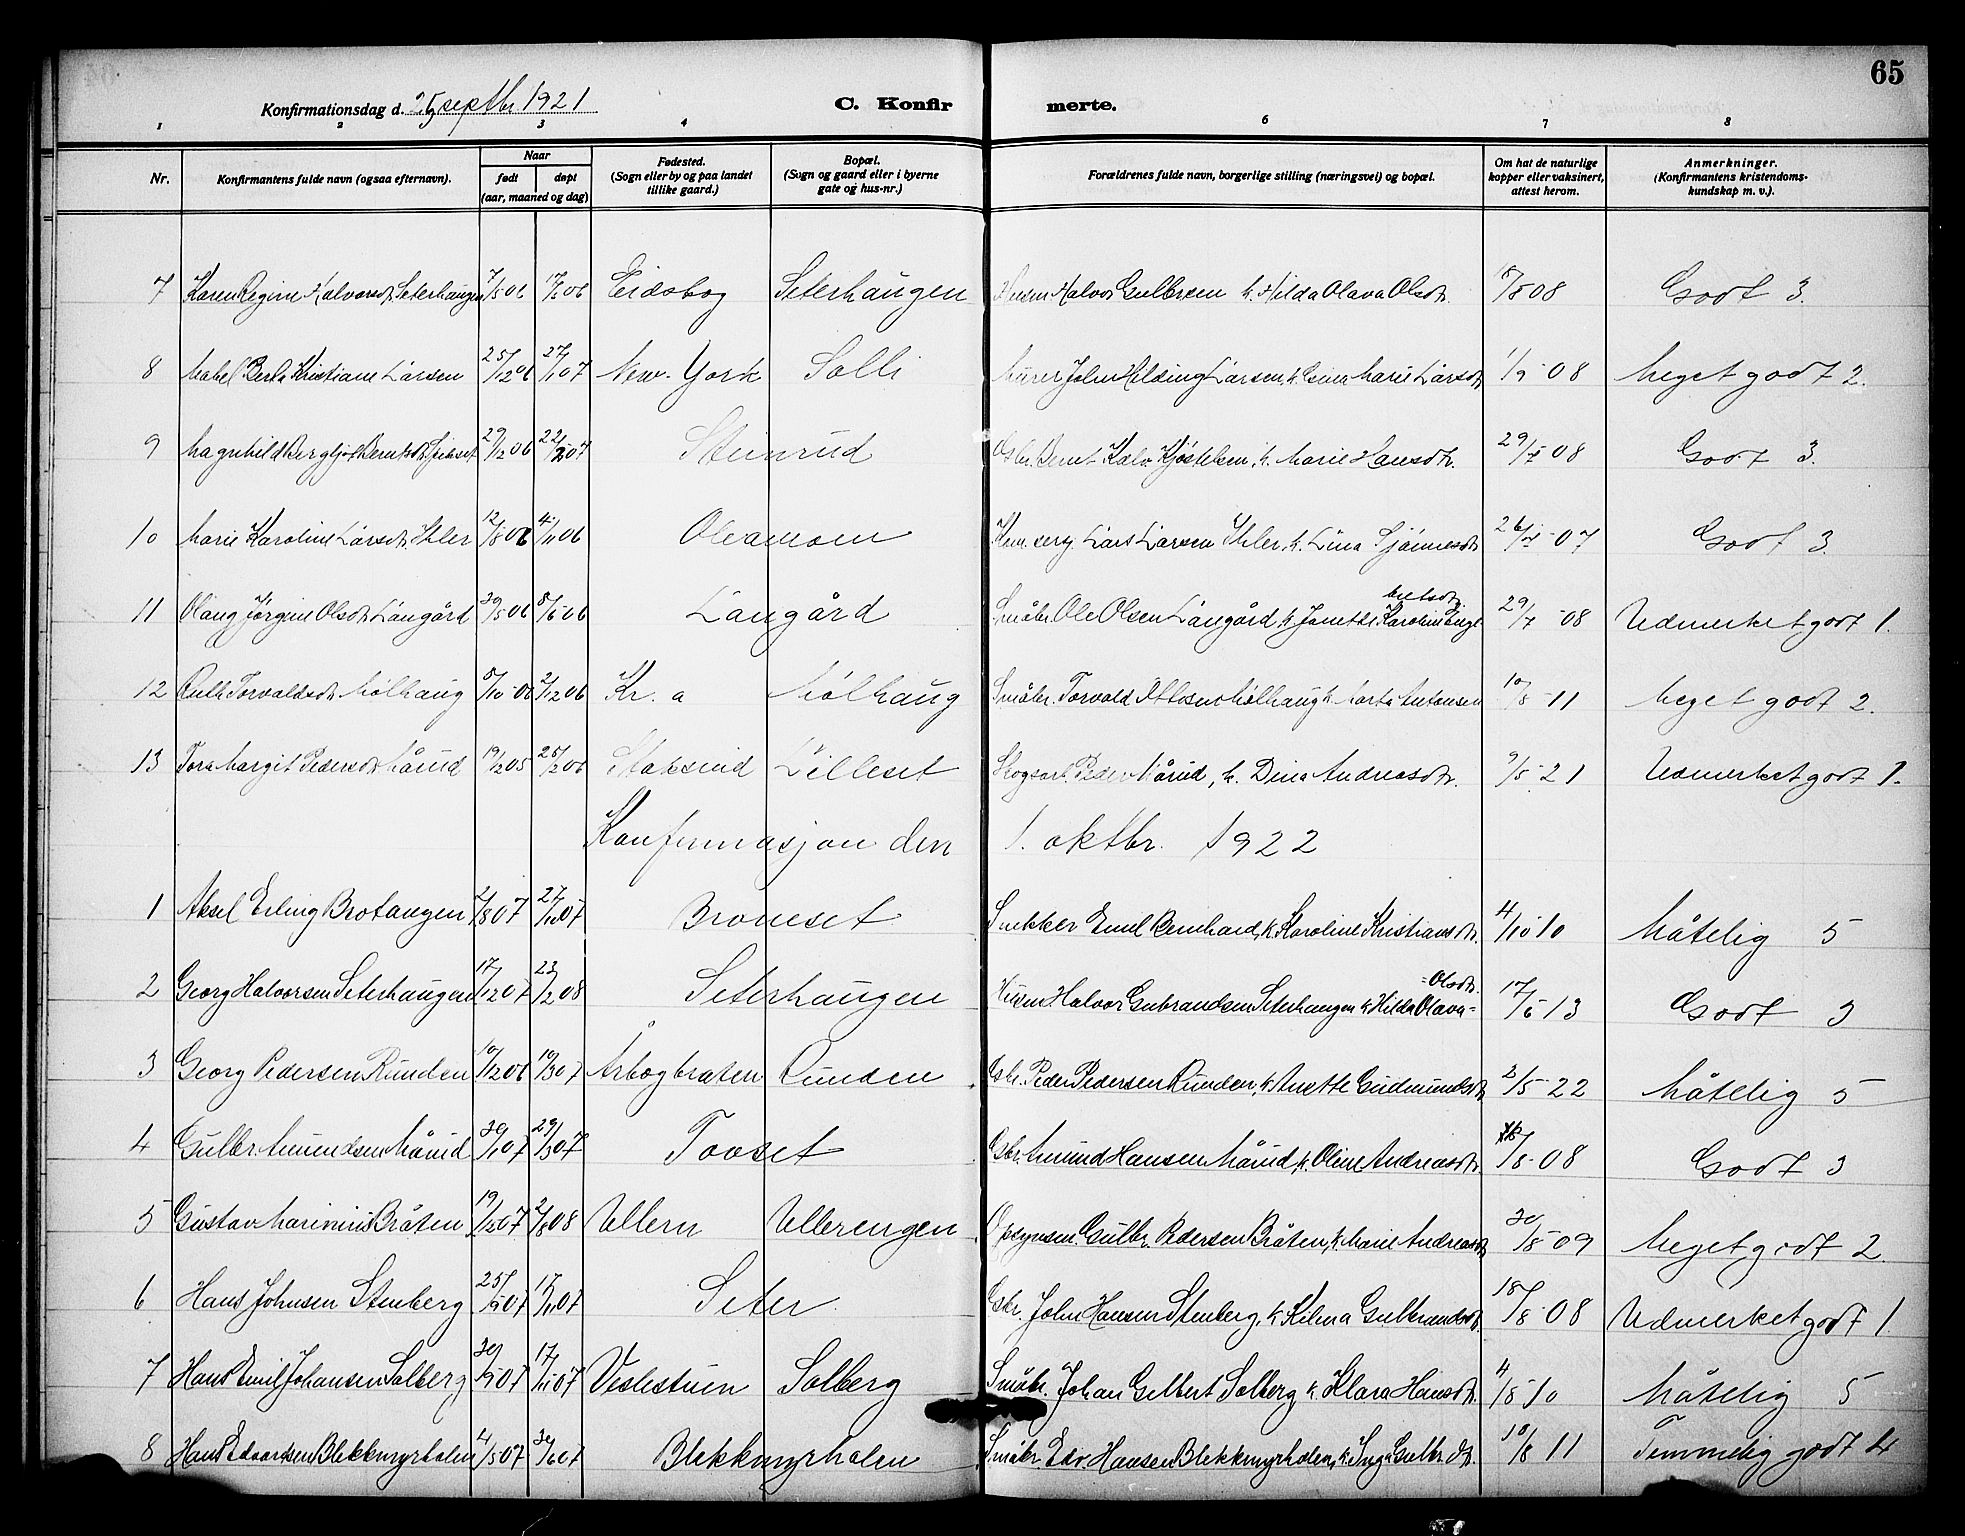 65
Konfirmationsdag d. 25 septbr. 1921 C. Konfir merte.
1 2 3 4 6 7 8
Nr. Konfirmantens fulde navn (ogsaa efternavn). Naar født døpt (aar, maaned og dag) Fødested. (Sogn eller by og paa landet tillike gaard.) Bopæl. (Sogn og gaard eller i byerne gate og hus-nr.) Forældrenes fulde navn, borgerlige stilling (næringsvei) og bopæl. Om hat de naturlige kopper eller vaksinert, attest herom. Anmerkninger. (Konfirmantens kristendomskundskap m. v.).
7 Karen Regine Halvorsdtr. Seterhaugen 7/5 06 Eidskog Seterhaugen Halvor Gulbrsen h. Hilda Olava Olsdtr. /8 08 Godt 3.
8 Mabel Berta Kristiane Larsen 25/12 06 27/1 07 New-York Solli Murer John Hilding Larsen, h. Gina Marie Larsdtr. 1/9-08 Meget godt 2.
9 Magnhild Bergljot Berntsdtr. 29/12 06 22/2 07 Steinrud Gbr. Bernt Kjøstelsen, h. Marie Hansdtr. 29/7 08 Godt 3.
10 Marie Karoline Larsdtr. Ihler 12/8 06 4/11 06 Olramoen Lars Larsen Ihler, h. Lina 26/7-07 Godt 3.
11 Olaug Jørgine Olsdtr. Langård 30/5 06 8/6 06 Langård Småbr. Ole Olsen Langård h. Janette Karoline Engebretsdtr. 29/7-08 Udmerket godt 1.
12 Ruth Torvaldsdtr. Mølhaug 5/10-06 2/12 06 Kr.a Mølhaug Småbr. Torvald Ottosen Mølhaug h. Marta Antonsen 10/8-11 Meget godt 2.
13 Tora Margit Pedersdtr. Mårud 19/12 05 25/2 06 Lilleset Skogsarb. Peder Mårud, h. Dina Andreasdtr. 9/5-21 Udmerket godt 1.
Konfirmasjon den 1. oktbr. 1922
1 Aksel Erling Brotangen 2/8 07 27/10 07 Broneset Snekker Emil Bernhard, h. Karoline Kristiansdtr. 4/10 10 Måtelig 5
2 Georg Halvorsen Seterhaugen 17/12 07 23/2 08 Seterhaugen Halvor Gubrandsen Seterhaugen h. Hilda Olava= =Olsdtr. 17/6 13 Godt 3
3 Georg Pedersen Runden 10/12 06 10/3 07 Årbogbraten Runden Gbr. Peder Pedersen Runden, h. Anette Gudmundsdtr. 2/5-22 Måtelig 5
4 Gulbr. Amundsen Mårud 30/1 07 29/3 07 Tovset Gbr. Amund Hansen Mårud, h. Oline Andreasdtr. /8-08 Godt 3
5 Gustav Marinius Bråten 19/12 07 2/8 08 Ullern Ullerengen Opsynsm. Gulbr. Pedersen Bråten, h. Marie Andreasdtr. 30/8-09 Meget godt 2.
6 Hans Johnsen Stenberg 25/9 07 17/11 07 Seter Gbr. John Hansen Stenberg, h. Gulbrandsdtr. 18/8-08 Udmerket godt 1.
7 Hans Emil Johansen Solberg 30/9 07 17/11 07 Veslestuen Solberg Småbr. Johan Gilbert Solberg, h. Klara Hansdtr. 4/8 10 Måtelig 5
8 Hans Edvardsen Blekkmyrholen 4/5 07 30/6 07 Blekkmyrholen Småbr. Edv. Hansen Blekkmyrholen, h. Inga Gulbr.dtr. 18/8 11 Temmelig godt 4